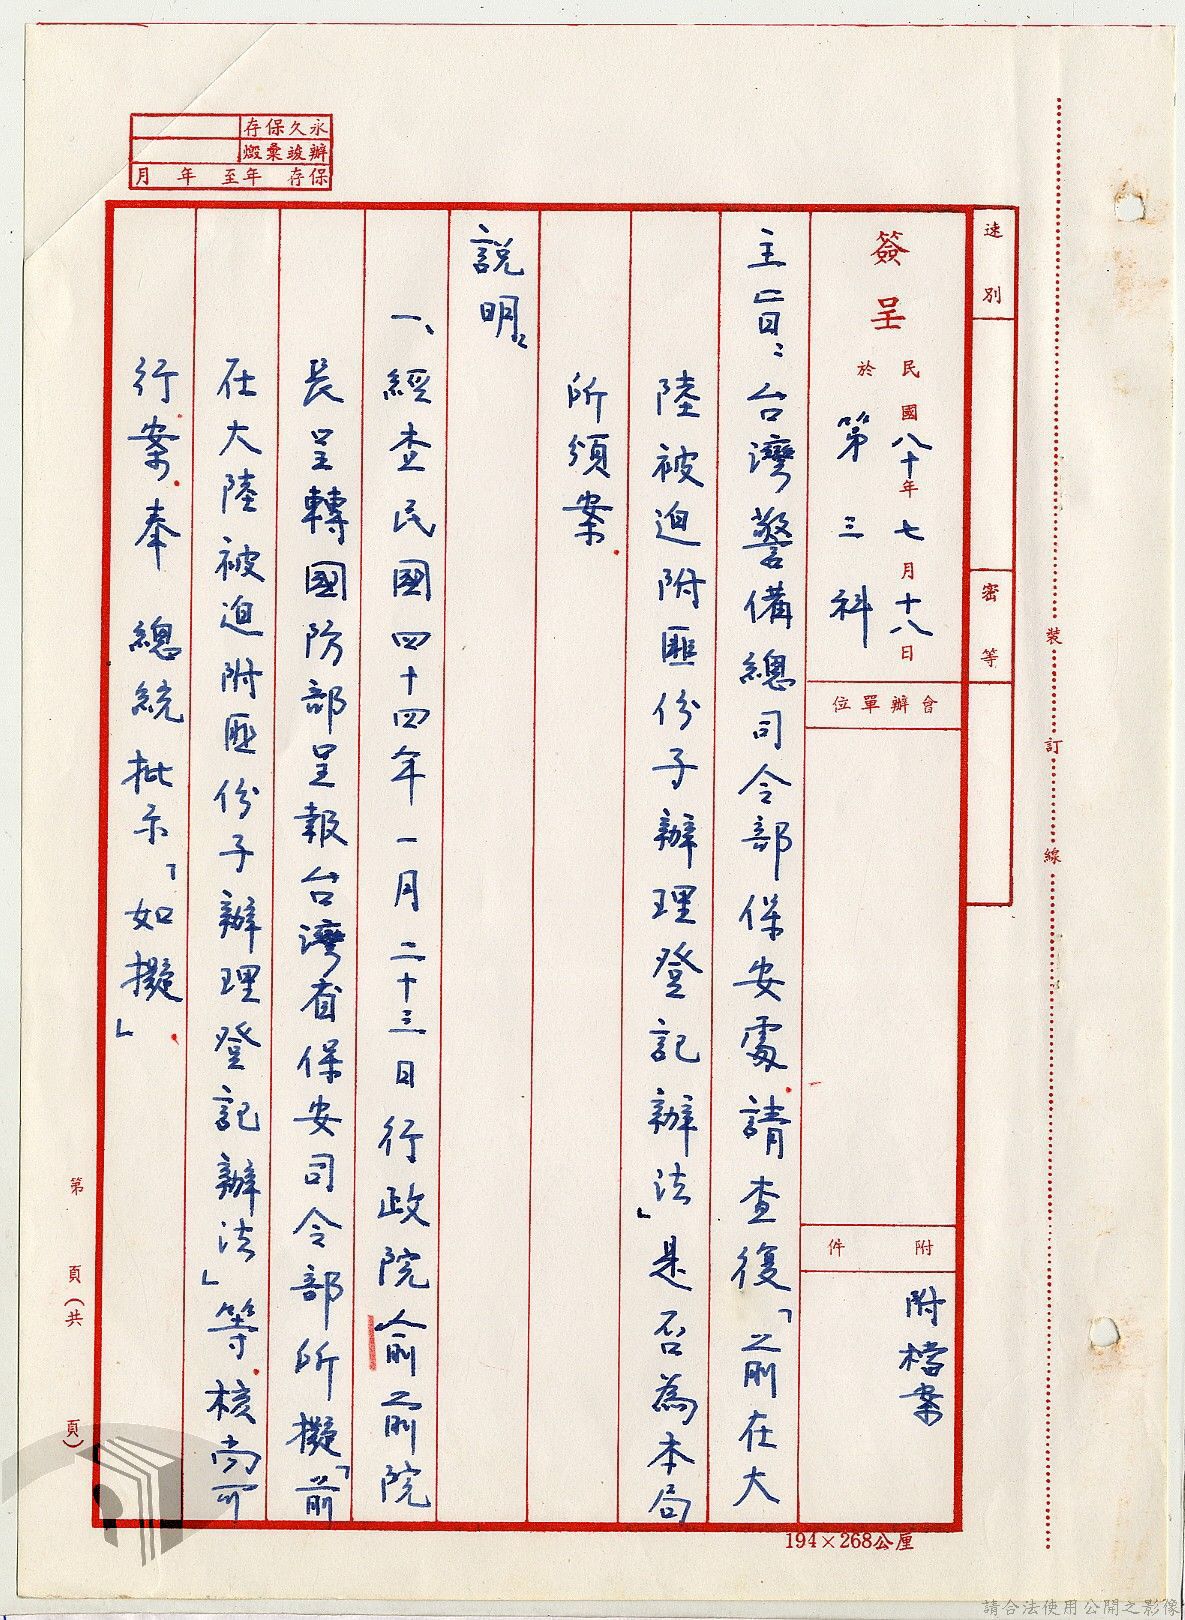 永久保存
辦竣彙燬
保存 年至 年 月
速別
密等
簽呈
民國八十年七月十八日
於 第三科
會辦單位
附件
附檔案
主旨：台灣警備總司令部保安處請查復「前在大
陸被迫附匪份子辦理登記辦法」是否為本局
所頒案
說明：
一、經查民國四十四年一月二十三日行政院俞前院
長呈轉國防部呈報台灣省保安司令部所擬「前
在大陸被迫附匪份子辦理登記辦法」等核尚可
行案奉 總統批示「如擬」
裝
訂
線
第 頁（共 頁）
194×268公厘
請合法使用公開之影像